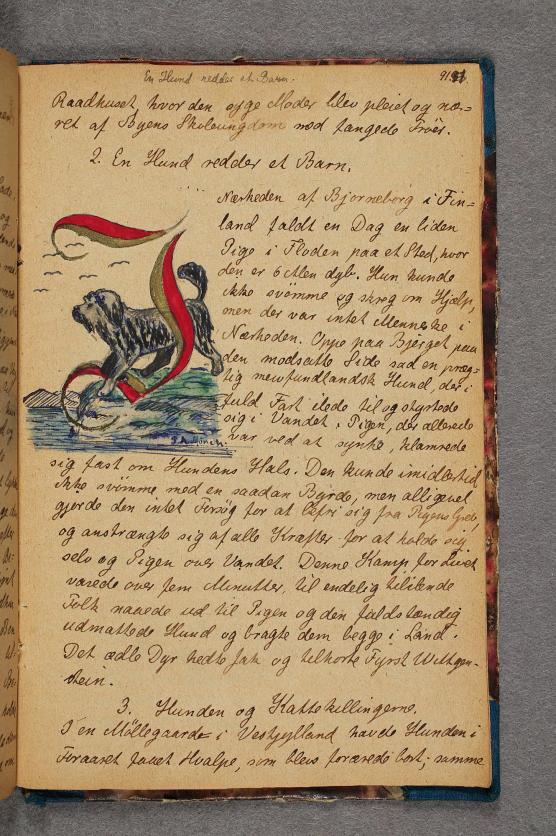 En Hund redder et Barn.
91.
Raadhuset, hvor den syge Moder blev pleiet og næ=
ret af Byens Skoleungdom med fangede Fröer.
2. En Hund redder et Barn.
I Nærheden af Bjorneborg i Fin=
land faldt en Dag en liden
Pige i Floden paa et Sted, hvor
den er 6 Alen dyb. Hun kunde
ikke svömme og skreg om Hjælp,
men der var intet Menneske i
Nærheden. Oppe paa Bjerget paa
den modsatte Side sad en præg=
tig newfundlandsk Hund, der i
fuld Fart ilede til og styrtede
sig i Vandet. Pigen, der allerede
var ved at synke, klamrede
sig fast om Hundens Hals. Den kunde imidlertid
ikke svömme med en saadan Byrde, men alligevel
gjorde den intet Forsög for at befri sig fra Pigens Greb,
og anstrængte sig af alle Kræfter for at holde sig
selv og Pigen over Vandet. Denne Kamp for Livet
varede over fem Minutter, til endelig tililende
Folk naaede ud til Pigen og den fuldstændig
udmattede Hund og bragte dem begge i Land.
Det ædle Dyr hedte Jak og tilhorte Fyrst Wittgen-
stein.
3. Hunden og Kattekillingerne.
I en Möllegaard i Vestjylland havde Hunden i
Foraaret faaet Hvalpe, som blev forærede bort; samme